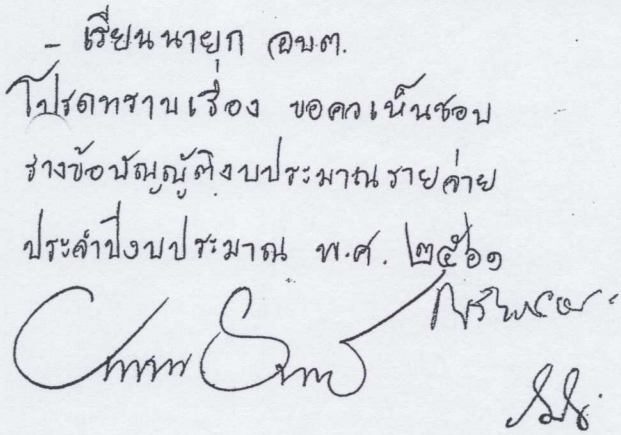 - เรียนนายก อบต.
โปรดทราบเรื่อง ขอควเห็นชอบ
ร่างข้อบัญญัติงบประมาณรายจ่าย
ประจำปีงบประมาณ พ.ศ. ๒๕๖๑